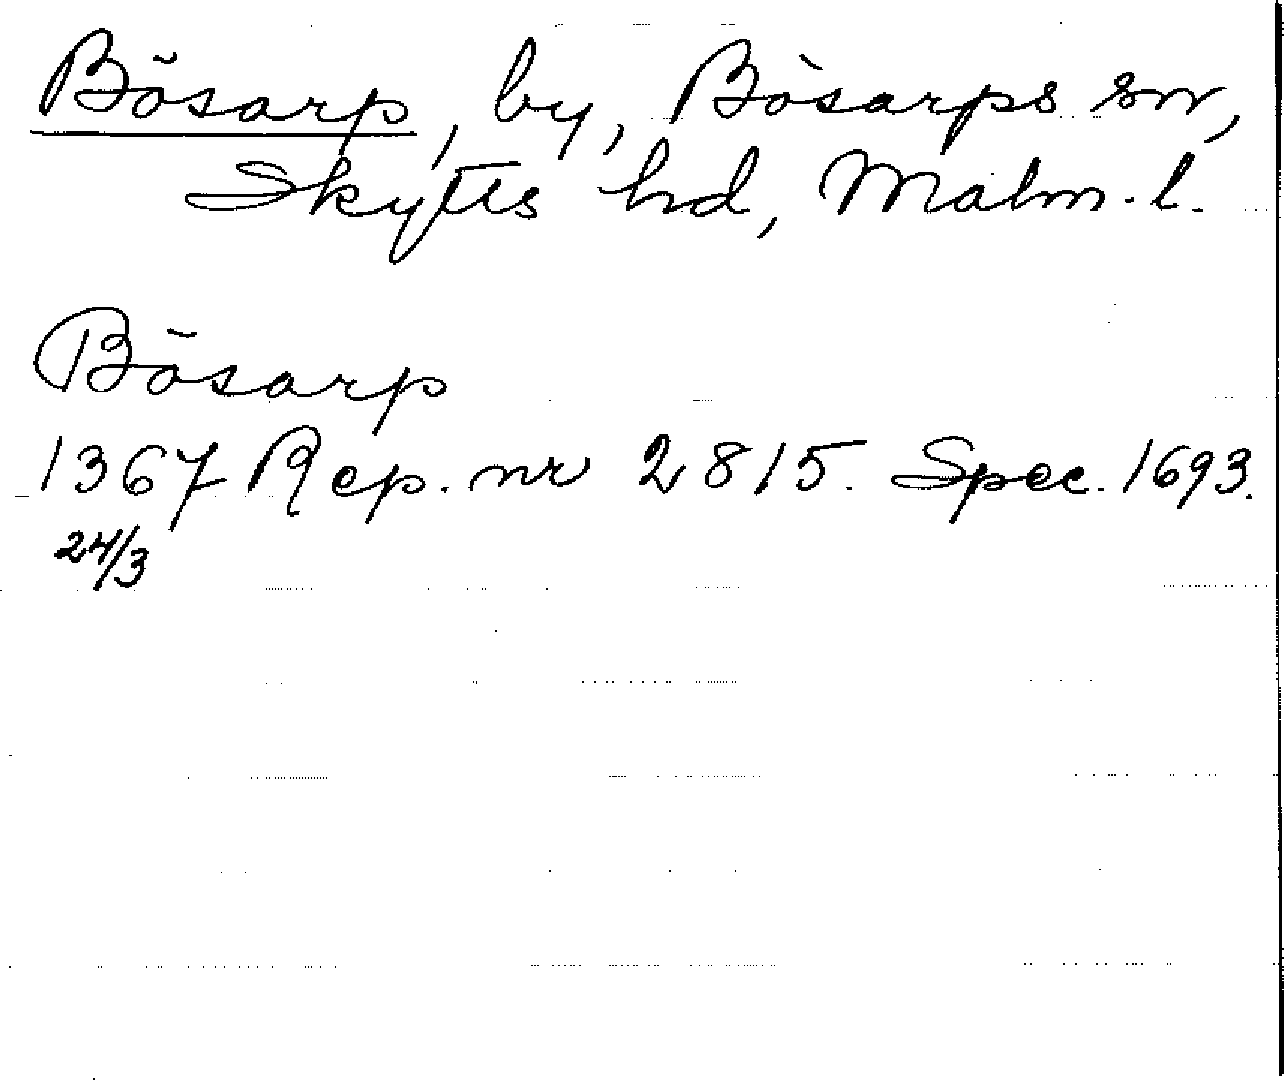 Bösarp, by, Bösarps sn,
Skytts hd, Malm. l.
Bösarp
1367 Rep. nr 2815. Spec. 1693.
24/3